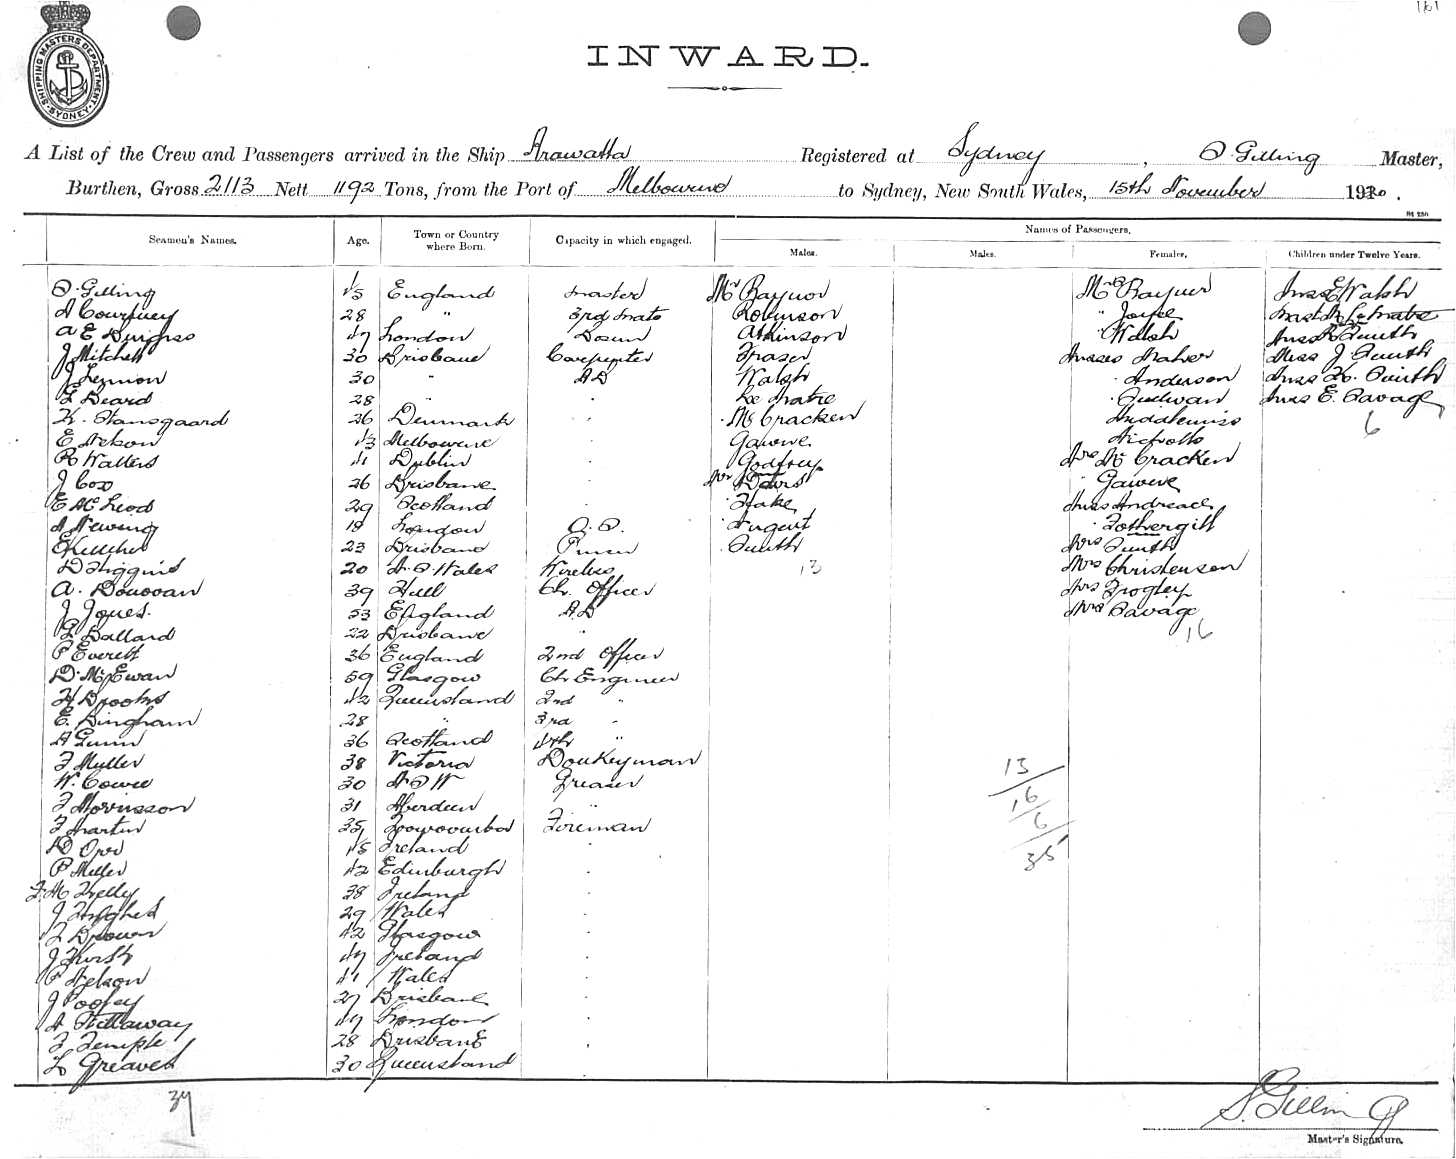 161
SHIPPING MASTERS DEPARTMENT SYDNEY
INWARD.
A List of the Crew and Passengers arrived in the Ship Arawatta Registered at Sydney, S. Gilling Master,
Burthen, Gross 2113 Nett 1192 Tons, from the Port of Melbourne to Sydney, New South Wales, 15th November 1920.
Seamen's Names. Age. Town or Country where Born. Capacity in which engaged. Names of Passengers.
Males. Males. Females. Children under Twelve Years.
S. Gilling 45 England Master Mr Raynor Mrs Rayner Miss E Walsh
28 " 3rd Mate Robinson " Joyce
47 London Bosun Atkinson " Walsh Miss R Smith
J Mitchell 30 Brisbane Carpenter Fraser Misses Maher Miss J Smith
J Lennon 30 " AB Walsh Anderson Miss K. Smith
L Beard 28 " Le Maitre Miss E. Savage
K. Hansgaard 26 Denmark McCracken 6
E Nelson 43 Melbourne Gawne Nicholls
R Walters 41 Dublin Godfrey Mrs McCracken
J Cox 26 Brisbane Mr Davis Gawne
E McLeod 29 Scotland Hake Miss Andreae
A Newing 19 London O.S. Nugent Fothergill
E Kelleher 23 Brisbane Smith Mrs Smith
D Higgins 20 N.S Wales Wireless 13 Mrs Christenson
A. Donovan 39 Hull Ch. Officer Mrs Frogley
J Jones. 53 England AB Mrs Savage
L Ballard 22 Brisbane 16
P Everett 36 England 2nd Officer
D. McEwan 59 Glasgow Ch Engineer
H Brooks 42 Queensland 2nd "
E. Bingham 28 " 3rd "
A Gunn 36 Scotland 4th "
F Muller 38 Victoria Donkeyman 13
W. Cowie 30 N S W Greaser 16
F Morrisson 31 Aberdeen " 6
F Martin 35 Toowoomba Fireman 35
D Orr 45 Ireland
P Miller 42 Edinburgh
38 Ireland
J Hughes 29 Wales
F Brown 42 Glasgow
J Hurst 47 Ireland
P Nelson 41 Wales
J Pooley 27 Brisbane
A Hillaway 47 London
F Temple 28 Brisbane
L Greaves 30 Queensland
37
S. Gilling
Master's Signature.